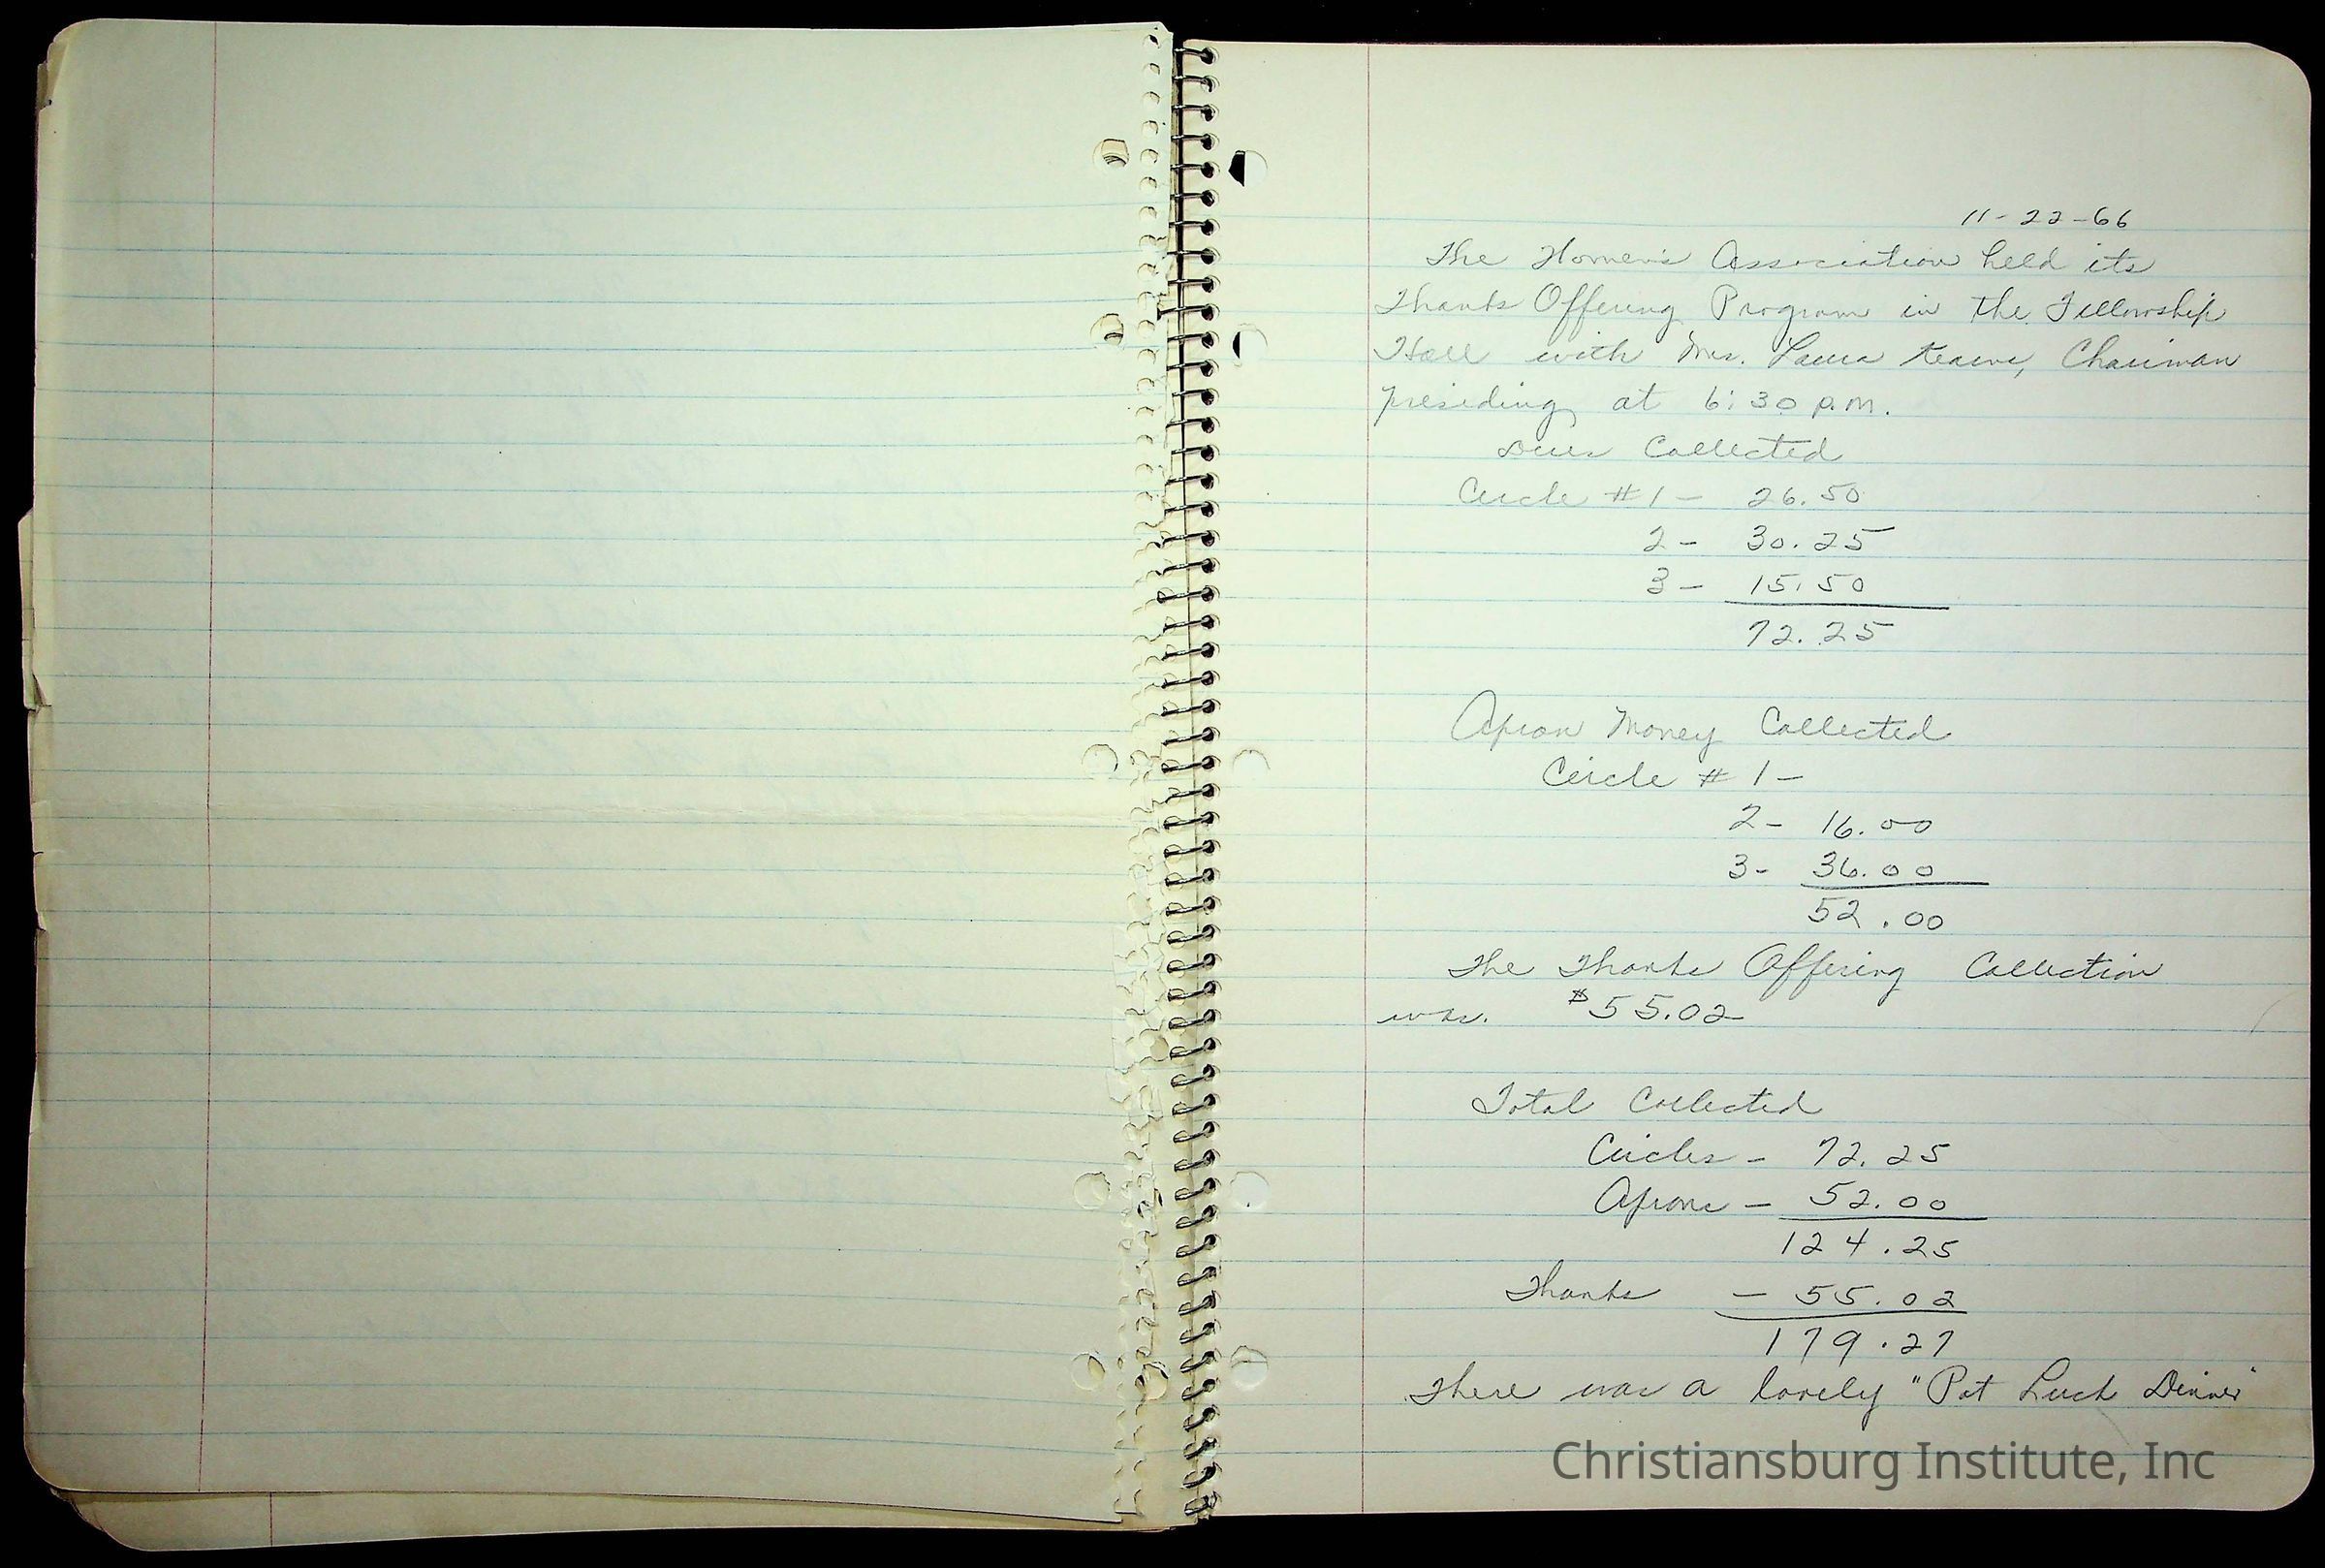 11-22-66
The Women's Association held its
Thanks Offering Program in the Fellowship
Hall with Mrs. Laura Chairman
presiding at 6:30 p.m.
Dues Collected
Circle #1 - 26.50
2 - 30.25
3 - 15.50
72.25
Apron Money Collected
Circle #1 -
2 - 16.00
3 - 36.00
52.00
The Thanks Offering Collection
was. $55.02
Total Collected
Circles - 72.25
Aprons - 52.00
124.25
Thanks - 55.02
179.27
There was a lovely "Pot Luck Dinner"
Christiansburg Institute, Inc